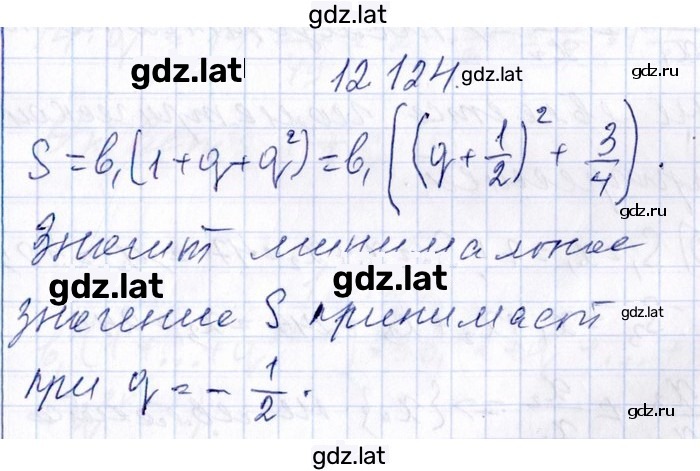 gdz.lat
gdz.lat 12 124. gdz.lat gdz.lat
S = b₁(1+q+q²) = b₁((q+1/2)²+3/4).
gdz.lat
Значит минимальное
gdz.lat gdz.lat
значение S принимает gdz.lat
при q = -1/2.
gdz.lat
gdz.lat